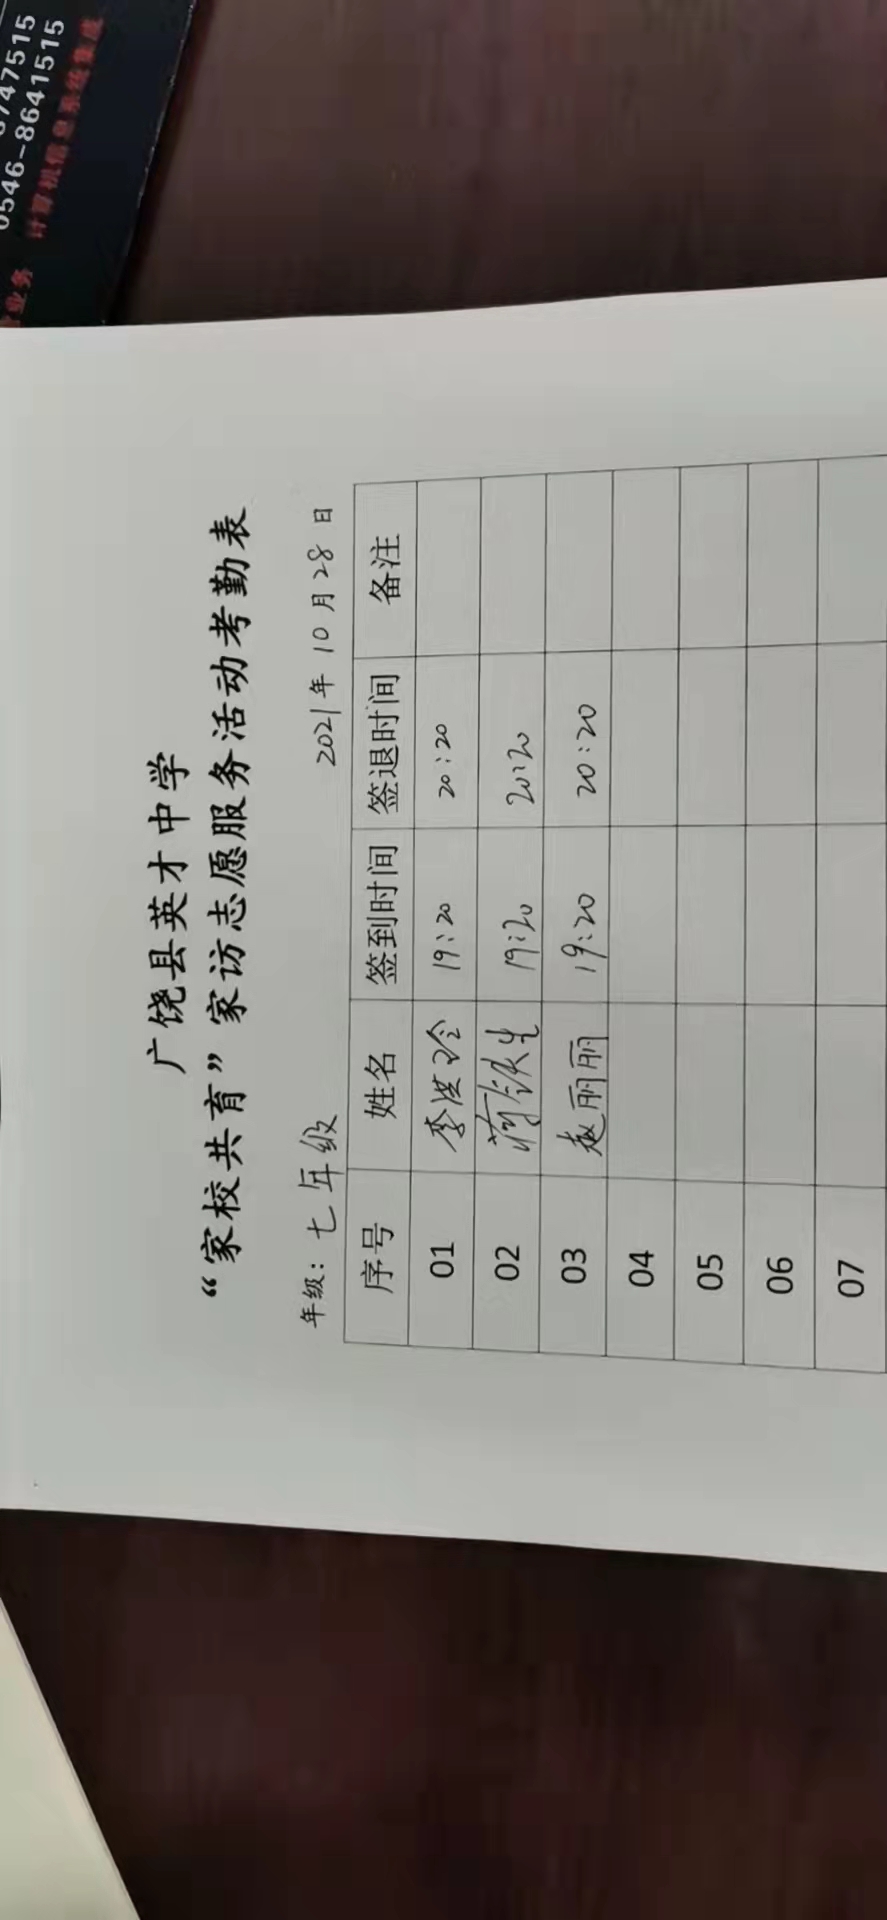 0546-8641515
计算机信息系统集成
业务
广饶县英才中学
“家校共育”家访志愿服务活动考勤表
年级：七年级 2021年10月28日
序号 姓名 签到时间 签退时间 备注
01 李洪玲 19:20 20:20
02 蒋铁生 19:20 20:20
03 赵丽丽 19:20 20:20
04
05
06
07